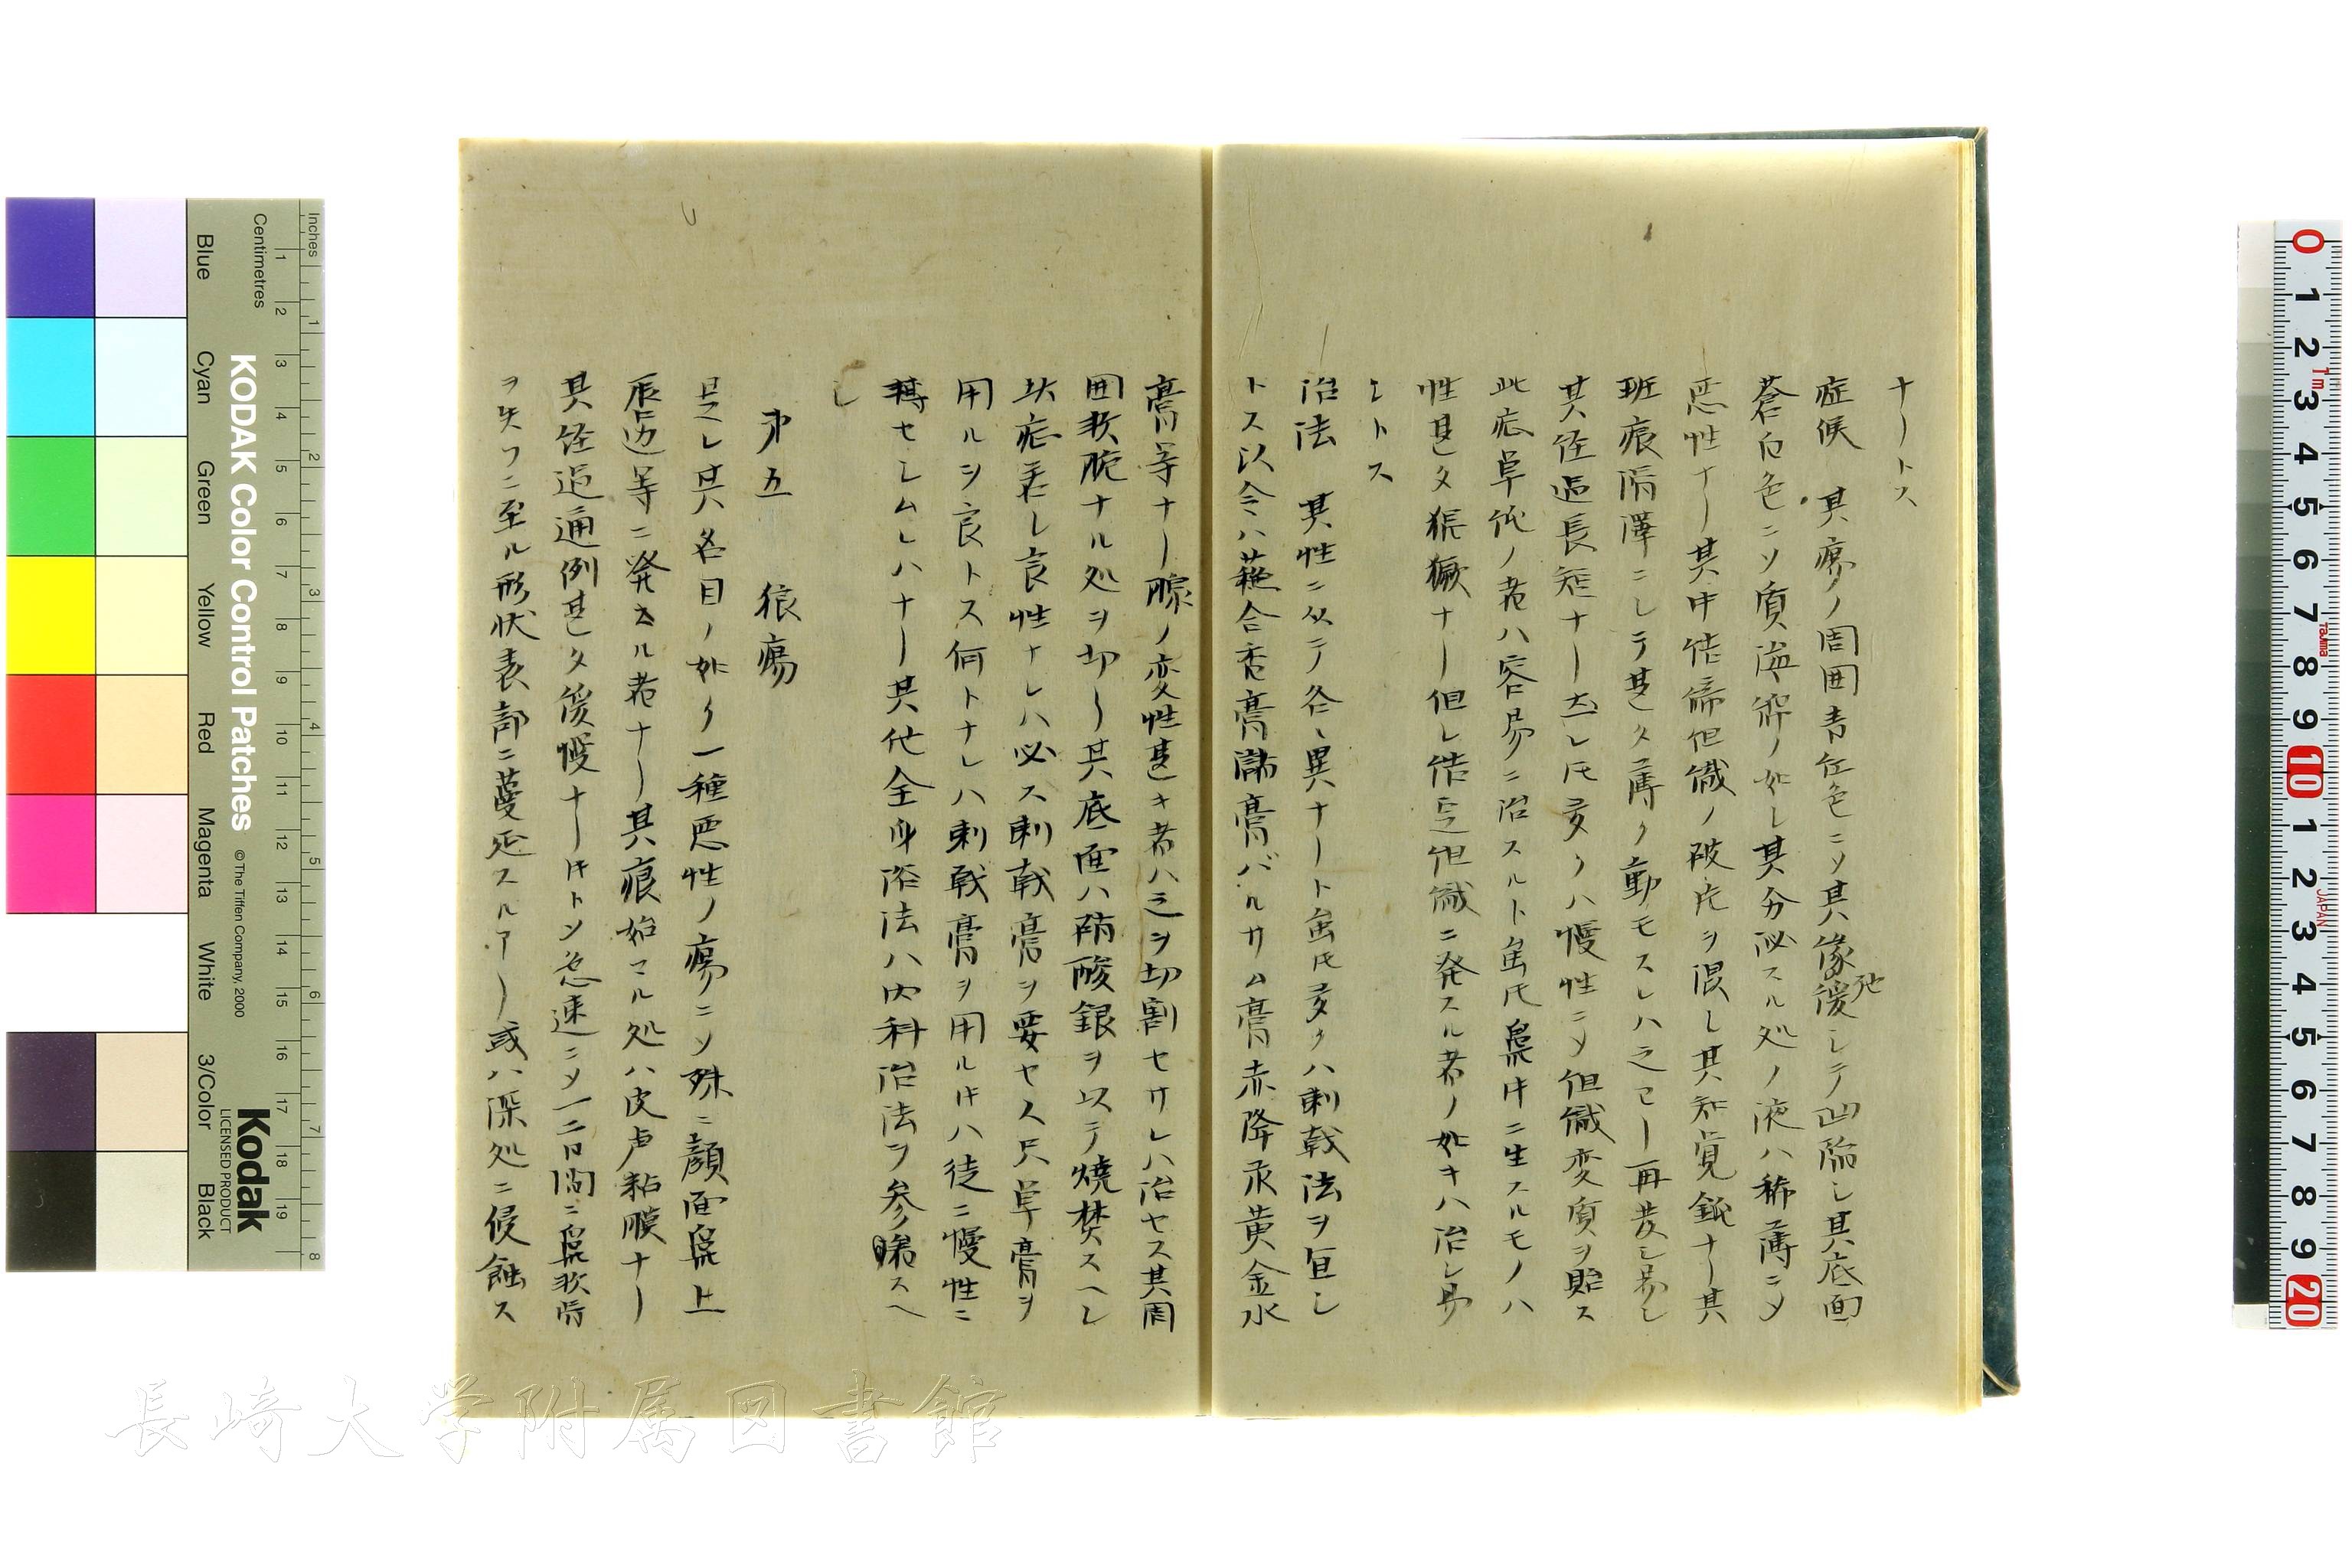 ナリトス
症候 其瘍ノ周囲青紅色ニシテ其縁弛緩シテ凹陥シ其底面
蒼白色ニソ質海綿ノ如シ其分泌スル処ノ液ハ稀薄ニソ
悪性ナリ其中結締組織ノ破片ヲ混シ其知覚鈍ナリ其
班痕滑澤ニシテ甚タ薄ク動モスレハ之ヨリ再発シ易シ
其経過長短ナリ然レ𪜈多クハ慢性ニソ組織変質ヲ貽ス
此症単純ノ者ハ容易ニ治スルト雖𪜈鼻中ニ生スルモノハ
性甚タ猖獗ナリ但シ結締組織ニ発スル者ノ如キハ治シ易
シトス
治法 其性ニ従テ各〻異ナリト雖𪜈多クハ刺戟法ヲ宜シ
トス以令ハ蘇合香膏 膏バルサム膏赤降汞黄金水
膏等ナリ腺ノ変性甚キ者ハ之ヲ切割セサレハ治セス其周
囲軟脆ナル処ヲ切リ其底面ハ硝酸銀ヲ以テ焼焚スヘシ
此症若シ良性ナレハ必ス刺戟膏ヲ要セス只単膏ヲ
用ルヲ良トス何トナレハ刺戟膏ヲ用ル時ハ徒ニ慢性ニ
轉セシムレハナリ其他全身療法ハ内科治法ヲ参睇スヘ
シ
第五 狼瘍
是レ其名目ノ如ク一種悪性ノ瘍ニソ殊ニ顔面鼻上
唇辺等ニ発スル者ナリ其痕始マル処ハ皮与粘膜ナリ
其経過通例甚タ緩慢ナリ時トシ急速ニソ一二日間ニ鼻軟骨
ヲ失フニ至ル形状表部ニ蔓延スルアリ或ハ深処ニ侵蝕ス
長崎大学附属図書館
Inches
Centimetres
KODAK Color Control Patches
© The Tiffen Company, 2000
Kodak
LICENSED PRODUCT
Blue
Cyan
Green
Yellow
Red
Magenta
White
3/Color
Black
1 2 3 4 5 6 7 8
1 2 3 4 5 6 7 8 9 10 11 12 13 14 15 16 17 18 19
0 1 2 3 4 5 6 7 8 9 10 1 2 3 4 5 6 7 8 9 20
1m
TAJIMA
JAPAN